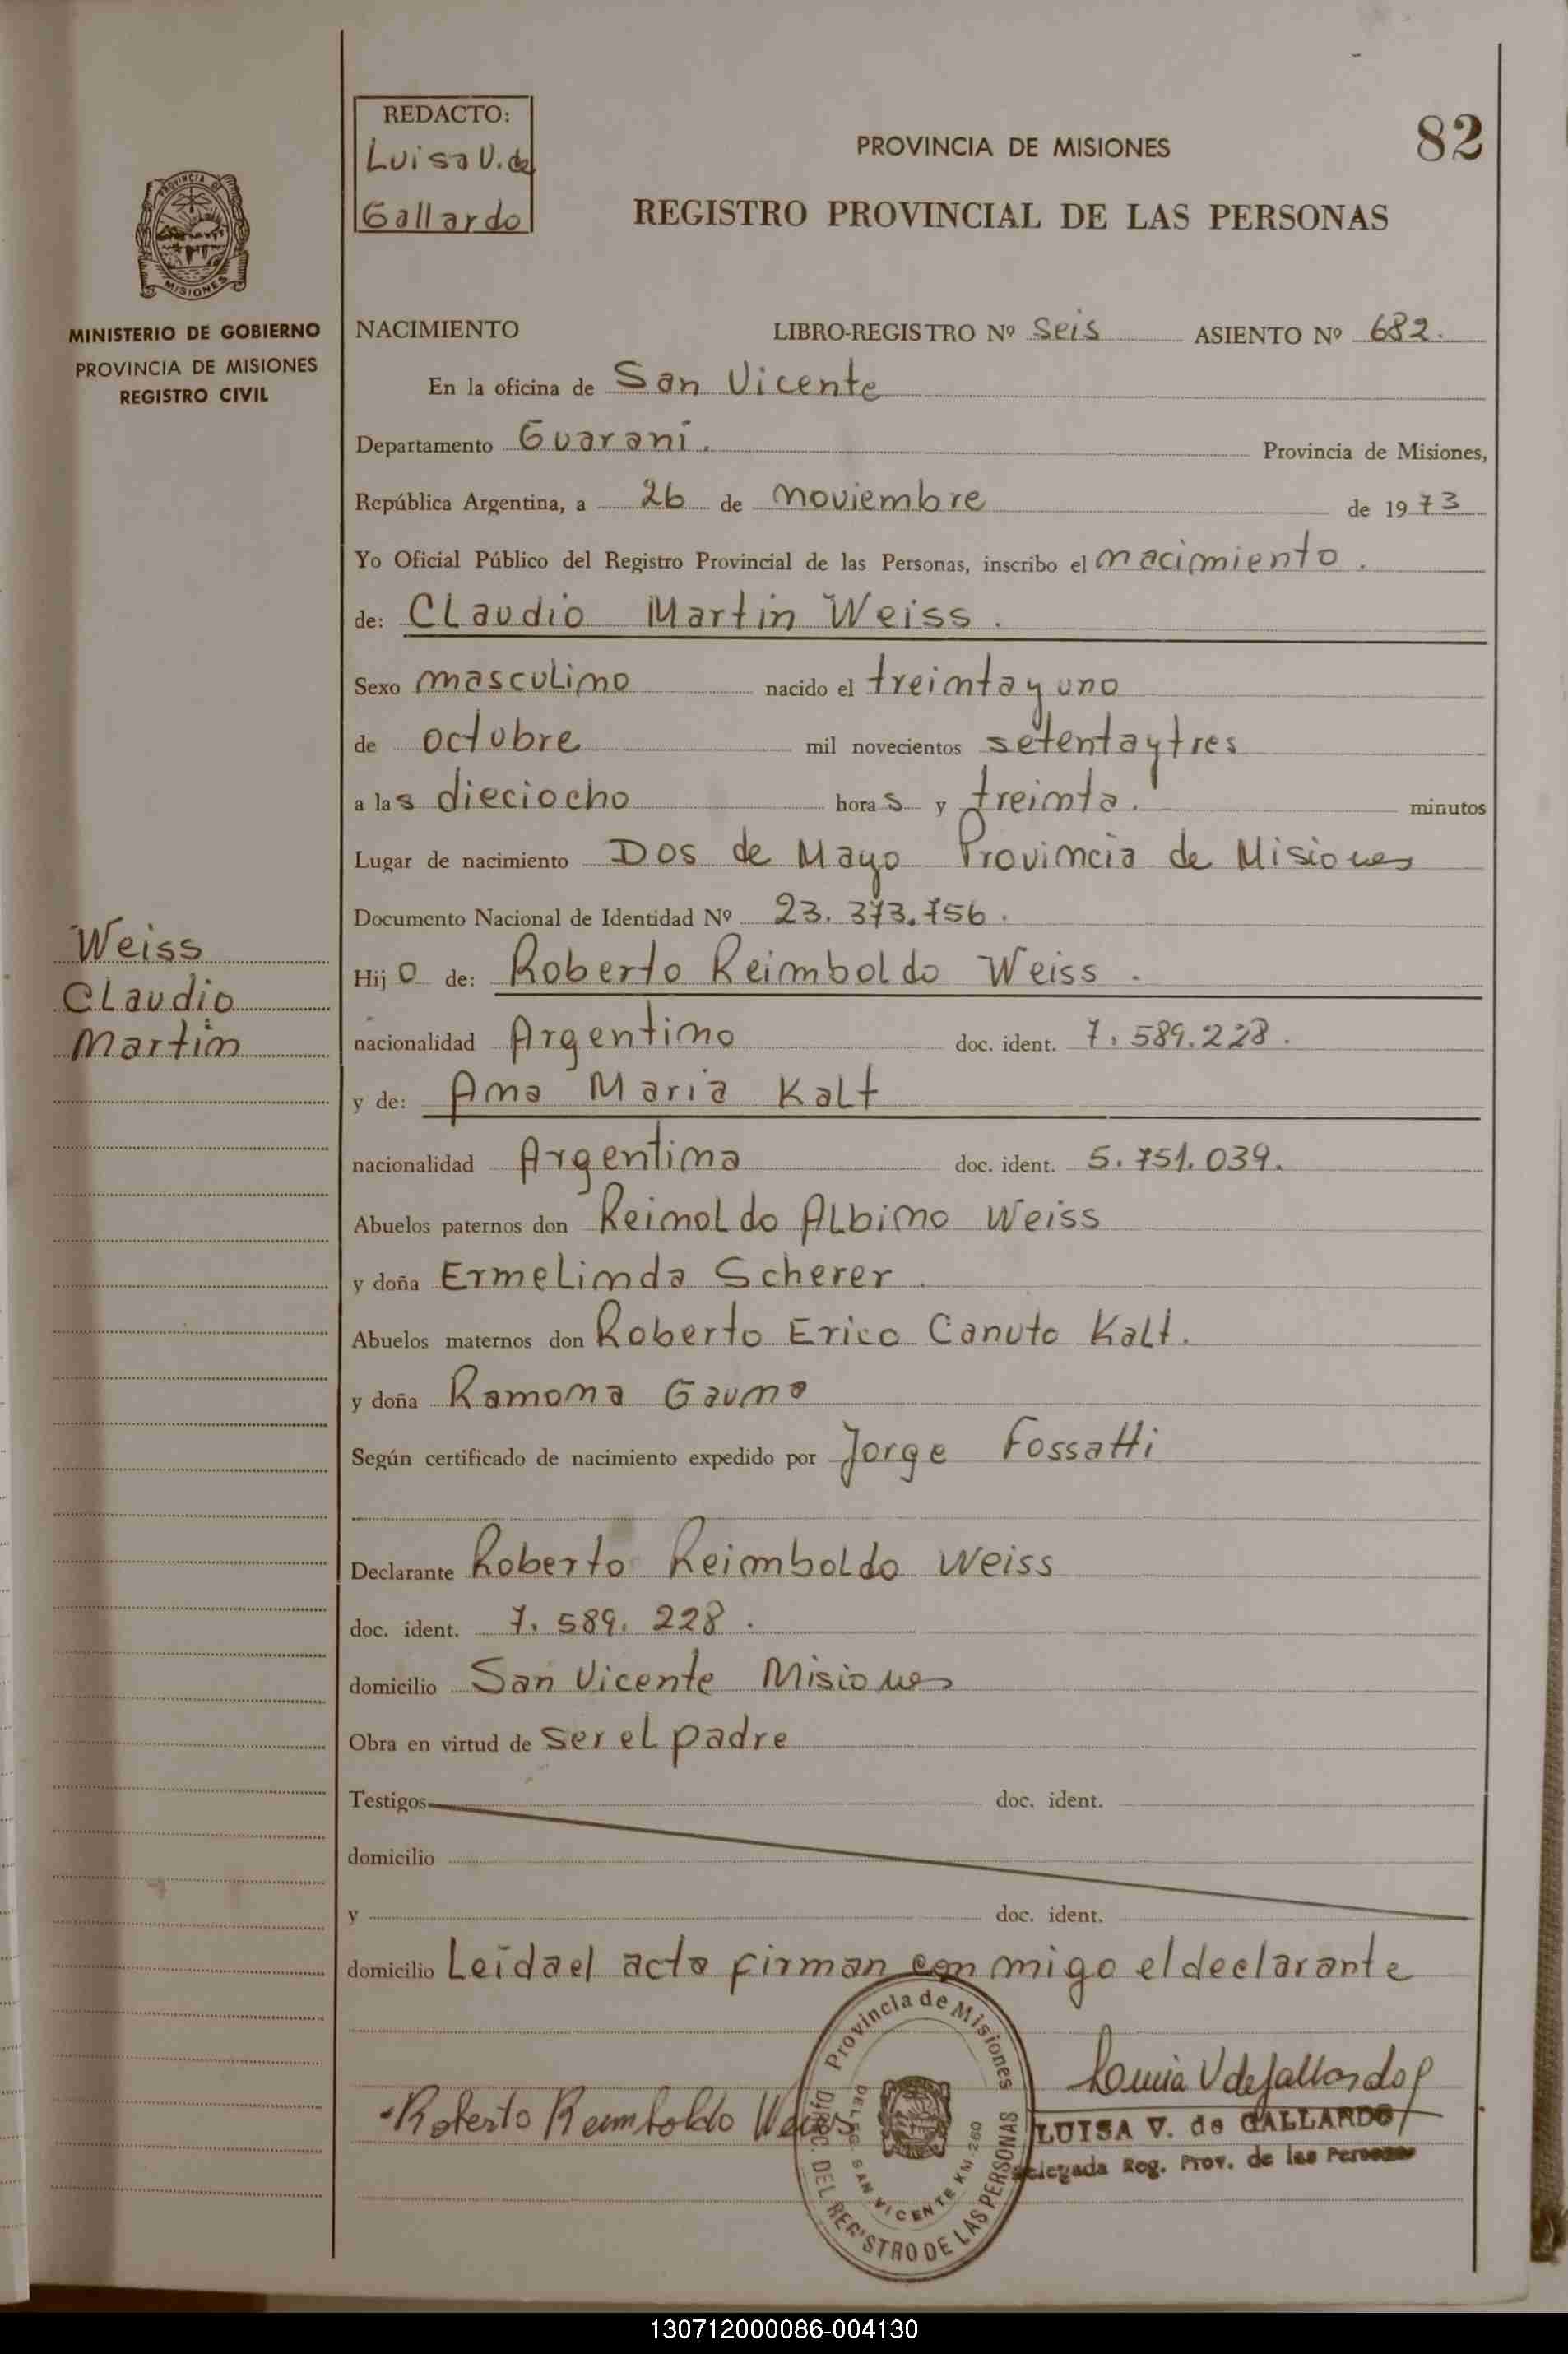 REDACTO:
Luisa V. de
Gallardo
PROVINCIA DE MISIONES
82
REGISTRO PROVINCIAL DE LAS PERSONAS
PROVINCIA DE
MISIONES
MINISTERIO DE GOBIERNO
PROVINCIA DE MISIONES
REGISTRO CIVIL
NACIMIENTO LIBRO-REGISTRO Nº Seis ASIENTO Nº 682.
En la oficina de San Vicente
Departamento Guaraní. Provincia de Misiones,
República Argentina, a 26 de noviembre de 1973
Yo Oficial Público del Registro Provincial de las Personas, inscribo el nacimiento.
de: Claudio Martin Weiss.
Sexo masculino nacido el treinta y uno
de octubre mil novecientos setenta y tres
a las dieciocho horas y treinta. minutos
Lugar de nacimiento Dos de Mayo Provincia de Misiones
Documento Nacional de Identidad Nº 23.373.756.
Weiss
Claudio
Martin
Hijo de: Roberto Reimboldo Weiss.
nacionalidad Argentino doc. ident. 7.589.228.
y de: Ana Maria Kalt
nacionalidad Argentina doc. ident. 5.751.039.
Abuelos paternos don Reinoldo Albino Weiss
y doña Ermelinda Scherer.
Abuelos maternos don Roberto Erico Canuto Kalt.
y doña Ramona Gauna
Según certificado de nacimiento expedido por Jorge Fossatti
Declarante Roberto Reimboldo Weiss
doc. ident. 7.589.228.
domicilio San Vicente Misiones
Obra en virtud de ser el padre
Testigos doc. ident.
domicilio
y doc. ident.
domicilio Leída el acta firman conmigo el declarante
Provincia de Misiones
DIREC. DEL REGISTRO DE LAS PERSONAS
SAN VICENTE KM. 260
Roberto Reimboldo Weiss
Luisa V de Gallardo
LUISA V. de GALLARDO
Delegada Reg. Prov. de las Personas
130712000086-004130